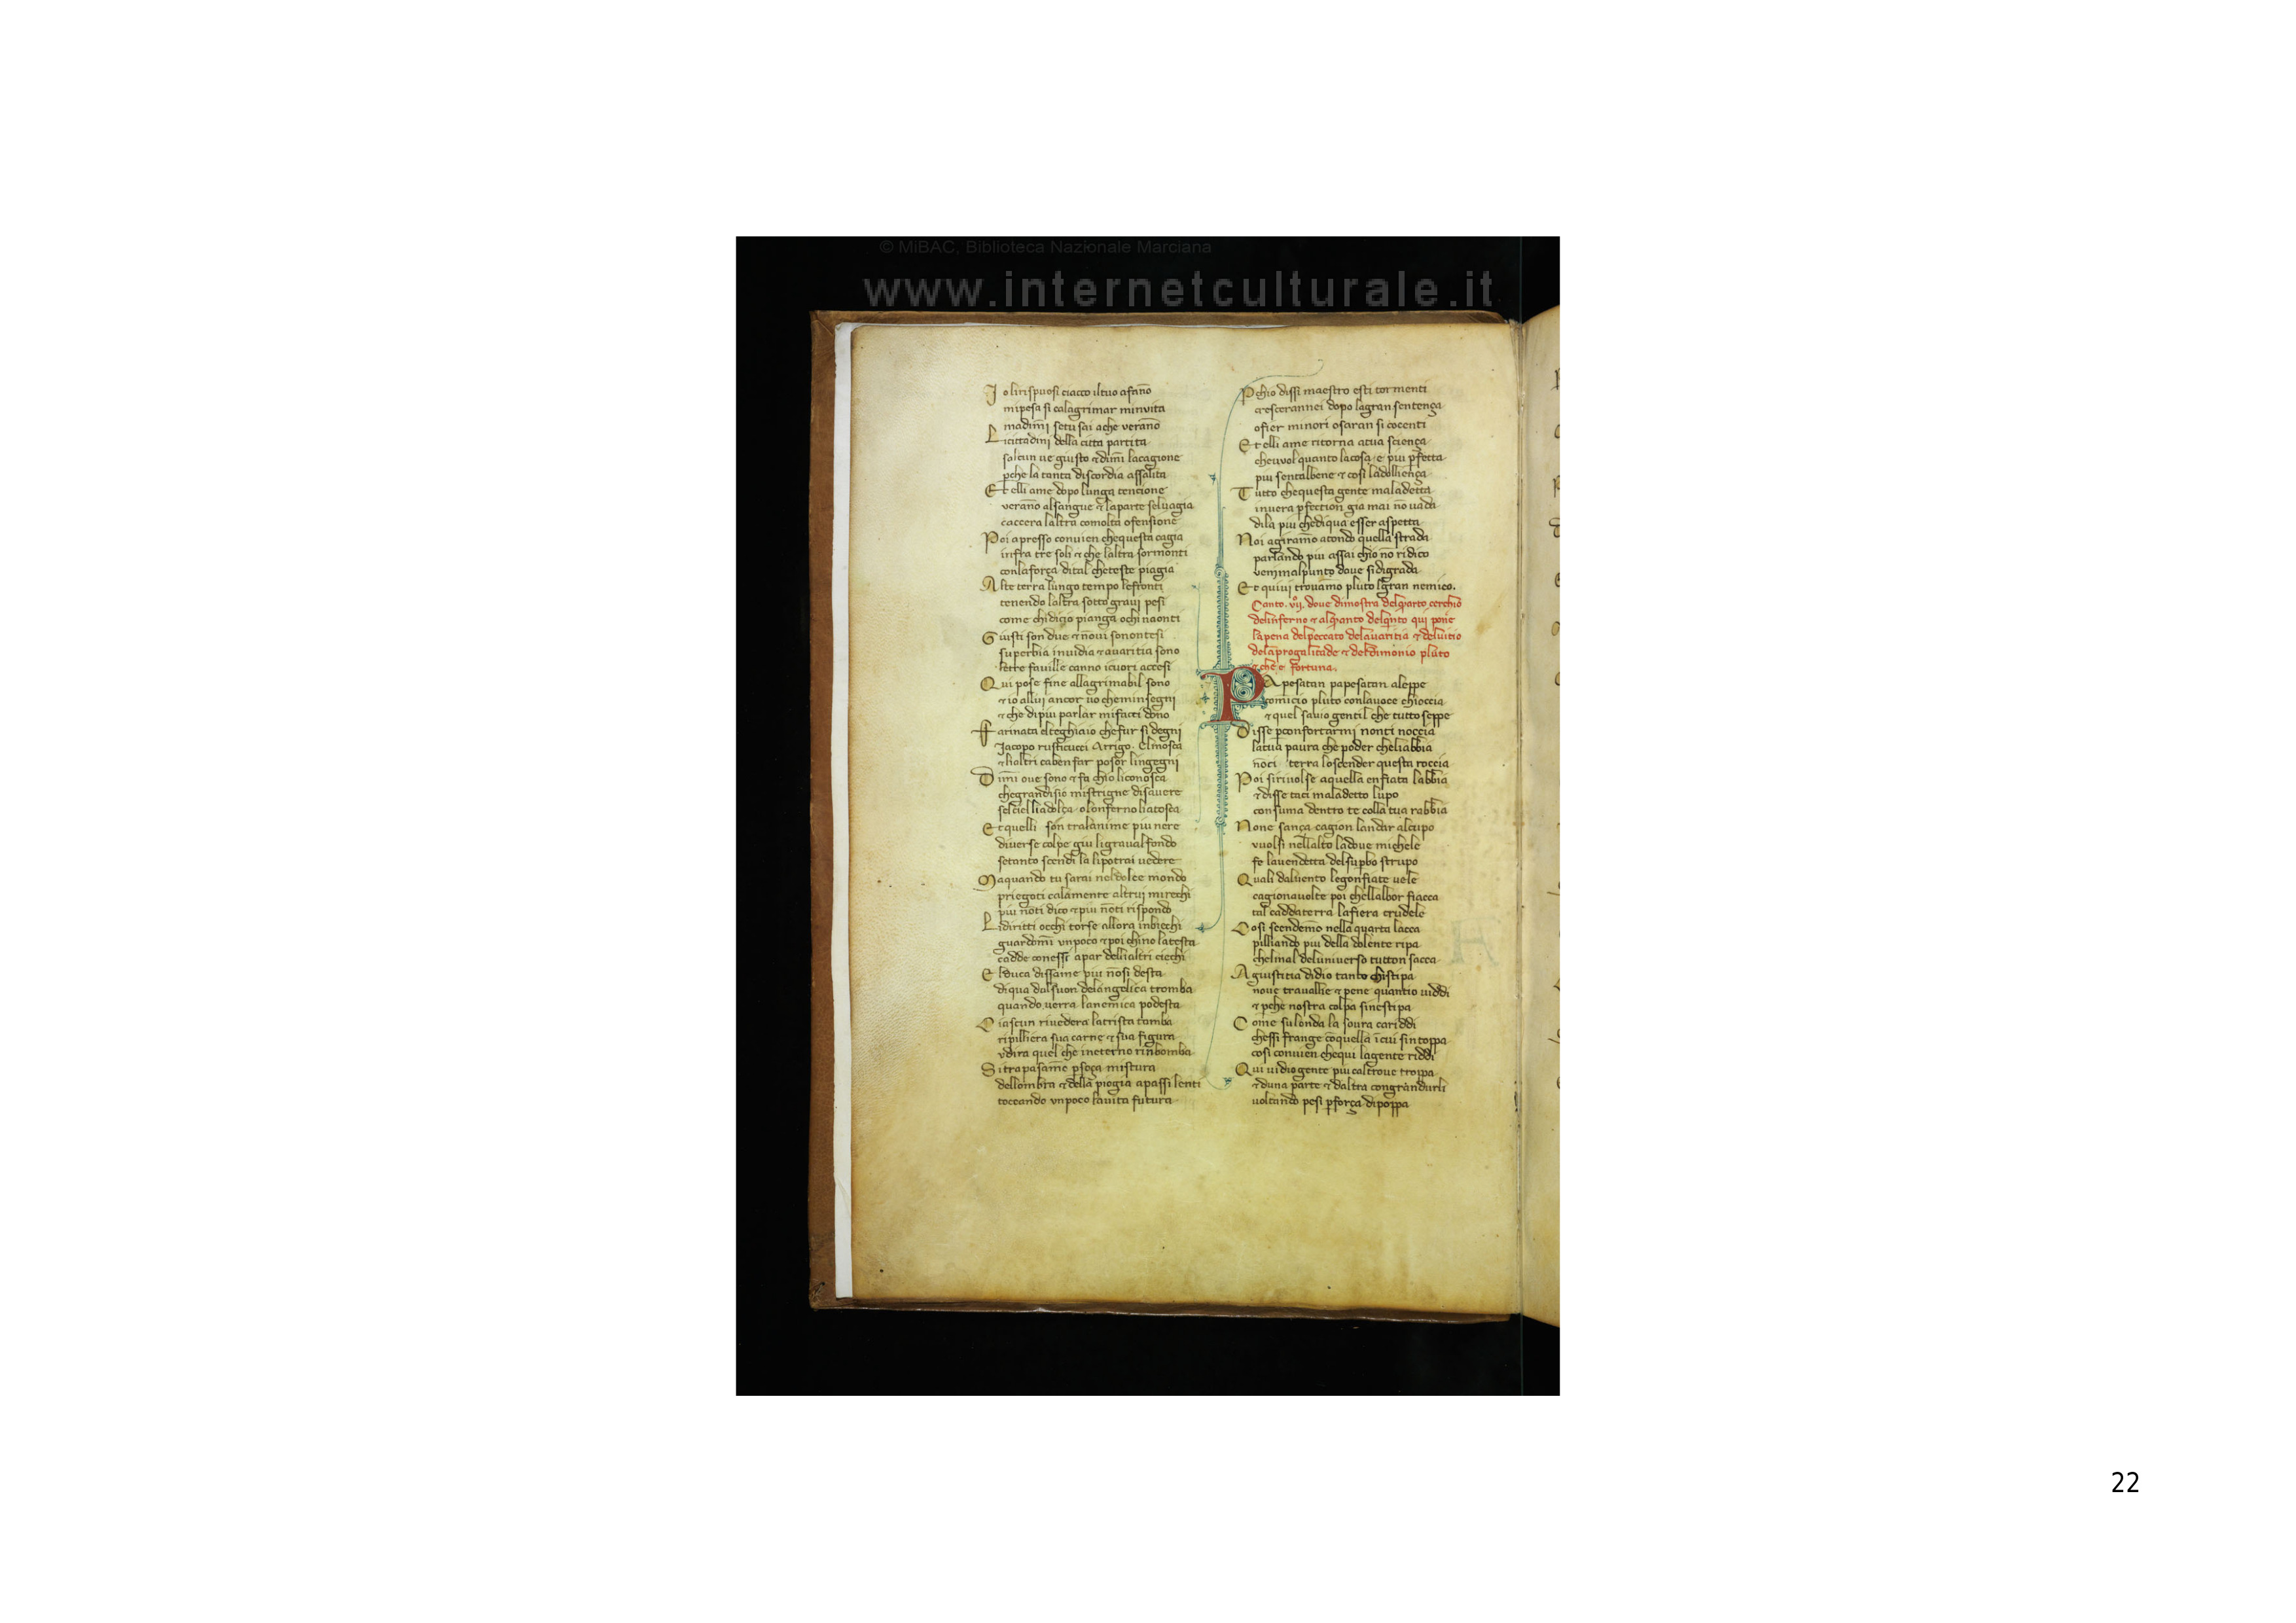 © MiBAC. Biblioteca Nazionale Marciana
www.internetculturale.it
Io lirispuosi ciacco iltuo afañо
mipesa si calagrimar minvita
madim̄i setu sai ache verãno
Licittadini della citta partita
salcun ue giusto ⁊ dim̄i lacagione
ꝑche la tanta discordia assalita
Et elli ame dopo lunga tencione
verãno alsangue ⁊ laparte seluagia
caccera laltra comolta ofensione
Poi apresso convien chequesta cagia
infra tre soli ⁊ che laltra sormonti
conlaforça dital cheteste piagia
Alte terra lungo tempo lefronti
tenendo laltra sotto gravi pesi
come chidicio pianga ochi naonti
Giusti son due ⁊ nõui sonontesi
superbia inuidia ⁊ auaritia sono
letre faville canno icuori accesi
Qui pose fine allagrimabil sono
⁊ io allui ancor uo cheminsegni
⁊ che dipiu parlar mifacci dono
Farinata elteghiaio chefur si degni
Jacopo rusticucci Arrigo. Elmosca
⁊ lialtri cabenfar poser lingegni
Dim̄i oue sono ⁊ fa chio liconosca
chegrandisio mistrigne disauere
selciel liadolça olonferno liatosca
Et quelli son tralanime piu nere
diuerse colpe giu ligraualfondo
setanto scendi la lipotrai uedere
Maquando tu sarai neldolce mondo
priegoti calamente altrui mirechi
piu nõti dico ⁊ piu nõti rispondo
Lidiritti occhi torse allora inbiechi
guardom̄i vnpoco ⁊ poi chino latesta
cadde conessi apar dellialtri ciechi
E lduca dissame piu nõsi desta
diqua dalsuon delangelica tromba
quando verra lanemica podesta
Ciascun riuedera latrista tomba
ripilliera sua carne ⁊ sua figura
vdira quel che ineterno rinbomba
Si trapasam̄e ꝑsoça mistura
dellombra ⁊ della piogia apassi lenti
toccando vnpoco lauita futura
Pchio dissi maestro esti tormenti
crescerannei dopo lagran sentença
ofier minori osaran si cocenti
Et elli ame ritorna atua sciença
cheuvol quanto lacosa e piu ꝑfetta
piu sentalbene ⁊ cosi ladolliença
Tutto chequesta gente maladetta
inuera ꝑfection gia mai nõ uada
dila piu chediqua esser aspetta
Noi agiramo atondo quella strada
parlando piu assai chio nõ ridico
venimalpunto doue sidigrada
Et quiui trouamo pluto lgran nemico.
Canto. vii. doue dimostra delquarto cerchio
delinferno ⁊ alquanto delquinto qui pone
lapena delpeccato delauaritia ⁊ deluitio
delaprogalitade ⁊ deldimonio pluto
⁊ che e fortuna.
PApesatan papesatan aleppe
comicio pluto conlauoce chioccia
⁊ quel sauio gentil che tutto seppe
Disse ꝑconfortarmi nonti noccia
latua paura che poder cheliabbia
nõci terra loscender questa roccia
Poi siriuolse aquella enfiata labbia
⁊ disse taci maladetto lupo
consuma dentro te colla tua rabbia
None sança cagion landar alcupo
vuolsi nellalto ladoue michele
fe lauendetta delsuꝑbo strupo
Quali daluento legonfiate uele
cagionauolte poi chellalbor fiacca
tal caddaterra lafiera crudele
Cosi scendemo nella quarta lacca
pilliando piu della dolente ripa
chelmal deluniuerso tutton sacca
A giustitia didio tanto chistipa
noue trauallie ⁊ pene quantio uiddi
⁊ ꝑche nostra colpa sinestipa
Come sulonda la soura cariddi
chessi frange cõquella ĩcui sintoppa
cosi convien chequi lagente riddi
Qui uidio gente piu caltroue troppa
⁊ duna parte ⁊ daltra congrandurli
uoltando pesi ꝑforça dipoppa
22